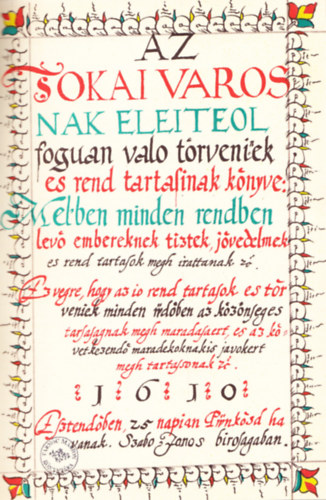 AZ
TOKAI VAROS
NAK ELEITEOL
foguan valo törveniek
es rend tartasinak könyve:
Melben minden rendben
levö embereknek tiztek, jövedelmek
es rend tartasok megh irattanak
Evegre, hogy az io rend tartasok es tör
veniek minden üdöben az közönseges
tarsasagnak megh maradasaert, es az kö
vetkezendö maradekoknakis javokert
megh tartassonak
1610
Esztendöben, 25 napian Pünkösd ha
vanak. Szabo Janos birosagaban.